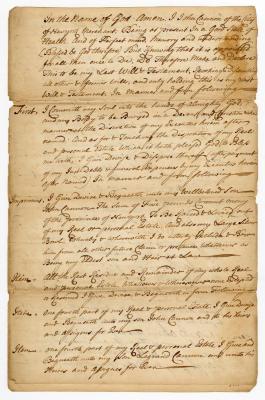 In the Name of God Amen. I John Cannon of the City
of Newyork Merchant Being at present In a Good State of
Health And of Perfect mind, memory and
(Blessed be God therefore) But Knowing that it is appointed
for all men once to Die, Do Therefore Make and Declare
This to be my Last Will & Testament, hereby
all other & former Wills, and only holding This to be my Last
Will & Testament. In manner and form following
First. I Committ my Soul into the hands of Almighty God,
and my Body to be Buryed in a Decent and Christian
manner at the Discretion of my Executors hereafter
named. And as for & Touching the Disposition of my Real
and personal Estate which it hath pleased God to Bless
me with, I Give Devise & Dispose thereof (after payment
of my Just debts & funeral Expenses by my Executors hereafter
named) In manner and form following
Imprimis, I Give Devise & Bequeath unto my Well beloved Son
John Cannon The Sum of five pounds Current money
of the Province of Newyork To Be Raised & Levied out
of my Real or personal Estate, and also my Large
Book, Thereby & wherewith I do
him all other future Claim or pretence Whatsoever as
Being my Eldest son and Heir at Law
Item. All the Rest Residue and Remainder of my whole Real
and personal Estate Whatsoever & Wheresoever
I Give Devise & Bequeath in form following
Item. One fourth part of my Real & personal Estate I Give Devise
and Bequeath unto my son John Cannon and to his Heirs
and assignes for Ever
Item. One fourth part of my Real & personal Estate I Give and
Bequeath unto my Son Legrand Cannon and unto his
Heirs and assignes for Ever